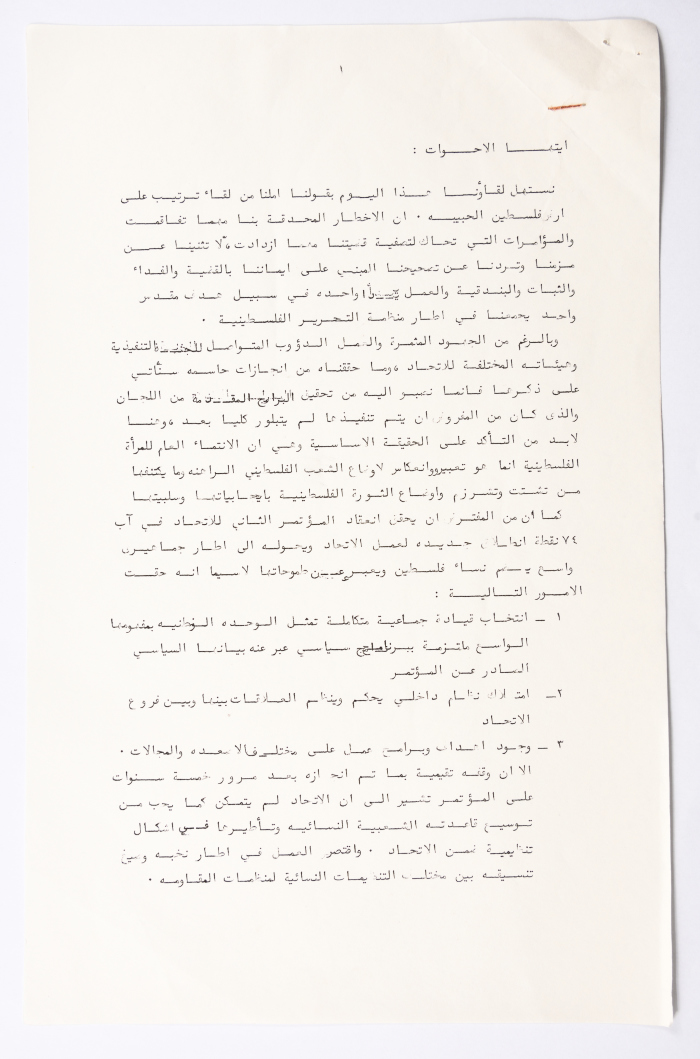 ١
ايتهـــا الاخـــوات :
نستهل لقاءنـا هـذا اليوم بقولنا املنا من لقاء ترتيب على
ارض فلسطين الحبيبه . ان الاخطار المحدقة بنا مهما تفاقمت
والمؤامرات التي تحاك لتصفية قضيتنا مهما ازدادت ، لا تثنينا عـن
عزمنا وتمردنا عـن تصحيحنا المبني على ايماننا بالقضية والفداء
والثبات والبندقية والعمل واحده في سبيل هـدف مقدس
واحد يجمعنا في اطار منظمة التحرير الفلسطينية .
وبالرغم من الجهود المثمرة والعمل الدؤوب المتواصل للجنة التنفيذية
وهيئاته المختلفة للاتحاد ، وما حققناه من انجازات حاسمه سنأتي
على ذكرها فاننا نصبو اليه من تحقيق البرامج المقدمة من اللجان
والذي كان من المفروض ان يتم تنفيذها لم يتبلور كليا بعد ، وهنا
لابد من التأكد على الحقيقة الاساسية وهي ان الانتماء العام للمرأة
الفلسطينية انما هو تعبير وانعكاس لاوضاع الشعب الفلسطيني الراهنه وما يكتنفها
من تشتت وتشرزم واوضاع الثورة الفلسطينية بايجابياتها وسلبيتها
كما ان من المفترض ان يحقق انعقاد المؤتمر الثاني للاتحاد في آب
٧٤ نقطة انطلاق جديده لعمل الاتحاد ويحوله الى اطار جماهيري
واسع يضم نساء فلسطين ويعبر عن طموحاتها لاسيما انه حقق
الامور التـالـيـة :
١ ـ انتخاب قيادة جماعية متكاملة تمثل الوحده الوطنيه بمفهومها
الواسع ملتزمة ببرنامج سياسي عبر عنه بيانها السياسي
الصادر عن المؤتمر
٢ـ امتلاك نظام داخلي يحكم وينظم العلاقات بينها وبين فروع
الاتحاد
٣ ـ وجود اهداف وبرامج عمل على مختلف الاصعده والمجالات .
الا ان وقفه تقيمية بما تم انجازه بعد مرور خمسة سنوات
على المؤتمر تشير الى ان الاتحاد لم يتمكن كما يجب من
توسيع قاعدته الشعبية النسائيه وتأطيرها فـي اشكال
تنظيمية ضمن الاتحاد . واقتصر العمل في اطار نخبه وصيغ
تنسيقه بين مختلف التنظيمات النسائية لمنظمات المقاومه .